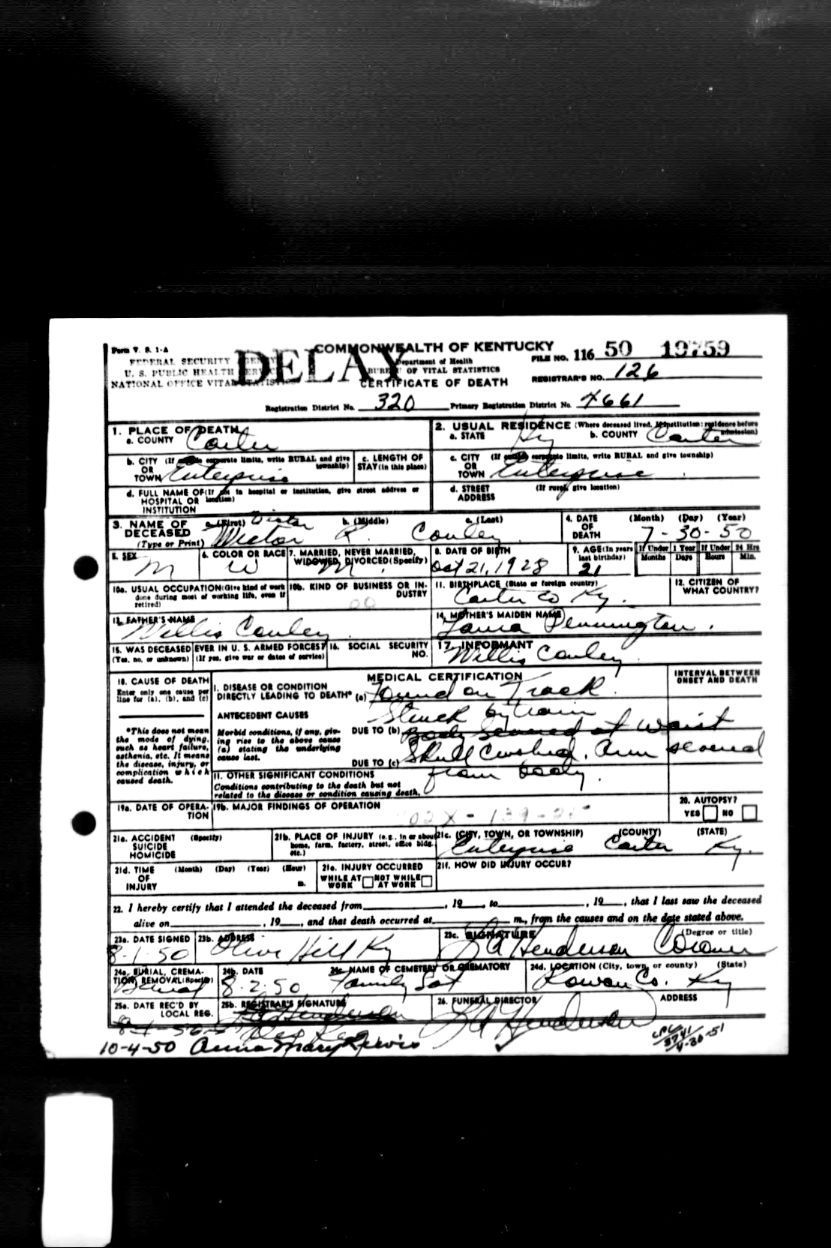 Form V. S. 1-A
COMMONWEALTH OF KENTUCKY
FEDERAL SECURITY AGENCY
DELAY
Department of Health
FILE NO. 116 50 19759
U. S. PUBLIC HEALTH SERVICE
BUREAU OF VITAL STATISTICS
NATIONAL OFFICE VITAL STATISTICS
CERTIFICATE OF DEATH
REGISTRAR'S NO. 126
Registration District No. 320 Primary Registration District No. 7661
1. PLACE OF DEATH
a. COUNTY Carter
2. USUAL RESIDENCE (Where deceased lived. If institution: residence before admission)
a. STATE Ky b. COUNTY Carter
b. CITY (If outside corporate limits, write RURAL and give township)
OR
TOWN Enterprise
c. LENGTH OF
STAY (in this place)
c. CITY (If outside corporate limits, write RURAL and give township)
OR
TOWN Enterprise
d. FULL NAME OF (If not in hospital or institution, give street address or location)
HOSPITAL OR
INSTITUTION
d. STREET (If rural, give location)
ADDRESS
3. NAME OF DECEASED
(Type or Print)
a. (First) b. (Middle) c. (Last)
Victor R. Conley
4. DATE OF DEATH (Month) (Day) (Year)
7-30-50
5. SEX
M
6. COLOR OR RACE
W
7. MARRIED, NEVER MARRIED,
WIDOWED, DIVORCED (Specify)
M
8. DATE OF BIRTH
Oct 21, 1928
9. AGE (In years last birthday)
21
If Under 1 Year
Months Days
If Under 24 Hrs
Hours Min.
10a. USUAL OCCUPATION (Give kind of work done during most of working life, even if retired)
10b. KIND OF BUSINESS OR INDUSTRY
11. BIRTHPLACE (State or foreign country)
Carter Co Ky.
12. CITIZEN OF
WHAT COUNTRY?
13. FATHER'S NAME
Willis Conley
14. MOTHER'S MAIDEN NAME
Pennington.
15. WAS DECEASED EVER IN U. S. ARMED FORCES?
(Yes, no, or unknown) (If yes, give war or dates of service)
16. SOCIAL SECURITY
NO.
17. INFORMANT
Willis Conley
18. CAUSE OF DEATH
Enter only one cause per
line for (a), (b), and (c)
MEDICAL CERTIFICATION
INTERVAL BETWEEN
ONSET AND DEATH
I. DISEASE OR CONDITION
DIRECTLY LEADING TO DEATH* (a) Found on Track
Struck by train
*This does not mean
the mode of dying,
such as heart failure,
asthenia, etc. It means
the disease, injury, or
complication which
caused death.
ANTECEDENT CAUSES
Morbid conditions, if any, giving rise to the above cause (a) stating the underlying cause last.
DUE TO (b) Body severed at waist
DUE TO (c) Skull Crushed. Arm severed
from body.
II. OTHER SIGNIFICANT CONDITIONS
Conditions contributing to the death but not
related to the disease or condition causing death.
19a. DATE OF OPERATION
19b. MAJOR FINDINGS OF OPERATION
20. AUTOPSY?
YES NO
21a. ACCIDENT (Specify)
SUICIDE
HOMICIDE
21b. PLACE OF INJURY (e.g., in or about home, farm, factory, street, office bldg. etc.)
21c. (CITY, TOWN, OR TOWNSHIP) (COUNTY) (STATE)
Enterprise Carter Ky.
21d. TIME (Month) (Day) (Year) (Hour)
OF
INJURY m.
21e. INJURY OCCURRED
WHILE AT WORK NOT WHILE AT WORK
21f. HOW DID INJURY OCCUR?
22. I hereby certify that I attended the deceased from , 19 , to , 19 , that I last saw the deceased
alive on , 19 , and that death occurred at m., from the causes and on the date stated above.
23a. DATE SIGNED
8-1-50
23b. ADDRESS
Olive Hill Ky
23c. SIGNATURE (Degree or title)
Henderson Coroner
24a. BURIAL, CREMATION, REMOVAL (Specify)
Burial
24b. DATE
8-2-50
24c. NAME OF CEMETERY OR CREMATORY
Family Lot
24d. LOCATION (City, town, or county) (State)
Rowan Co. Ky
25a. DATE REC'D BY
LOCAL REG.
25b. REGISTRAR'S SIGNATURE
26. FUNERAL DIRECTOR ADDRESS
Henderson
10-4-50 Anna Mary Lewis
4-30-51